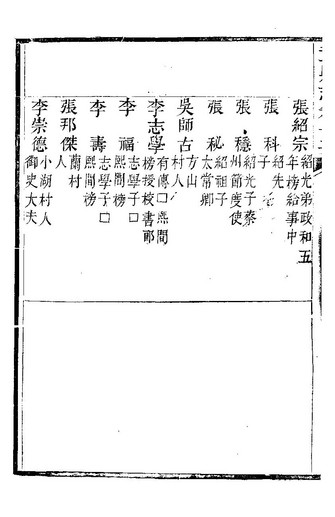 張紹宗 紹光弟政和五年榜給事中
張科 紹先子
張穩 紹光子蔡州節度使
張秘 紹祖子太常卿
吳師古 方山村人
李志學 有傳□熙間榜授校書郎
李福 志學子□熙間榜
李壽 志學子□熙間榜
張邦傑 蘭村人
李崇德 小湖村人御史大夫